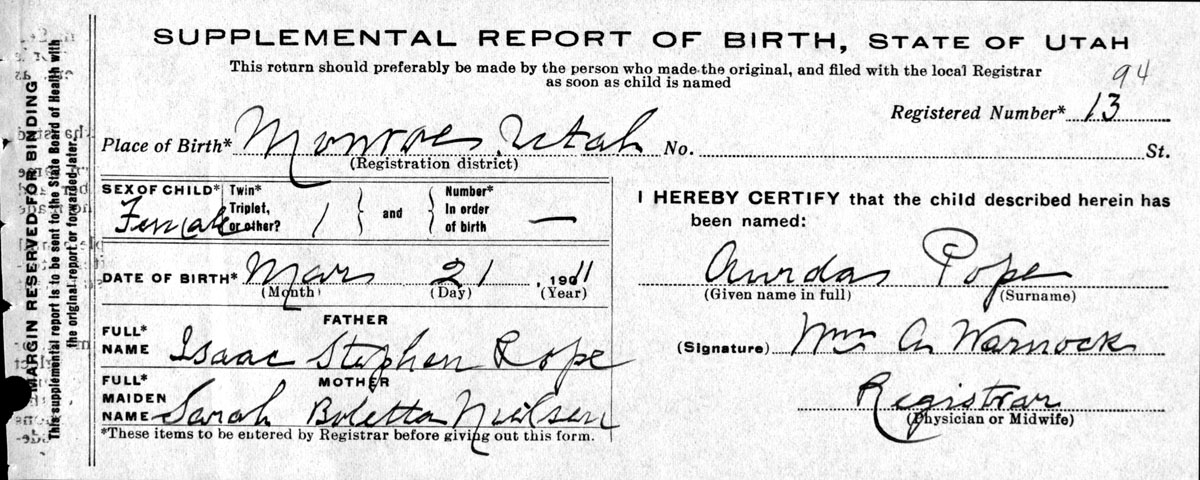 SUPPLEMENTAL REPORT OF BIRTH, STATE OF UTAH
This return should preferably be made by the person who made the original, and filed with the local Registrar
as soon as child is named
94
Registered Number* 13
Place of Birth* Monroe, Utah No. St.
(Registration district)
SEX OF CHILD* Twin* Triplet, or other? 1 and Number* In order of birth —
Female
DATE OF BIRTH* Mar 21, 1911
(Month) (Day) (Year)
FATHER
FULL* NAME Isaac Stephen Pope
MOTHER
FULL* MAIDEN NAME Sarah Boletta Nielsen
*These items to be entered by Registrar before giving out this form.
I HEREBY CERTIFY that the child described herein has
been named:
Pope
(Given name in full) (Surname)
(Signature) Wm A Warnock
Registrar
(Physician or Midwife)
MARGIN RESERVED FOR BINDING
This supplemental report is to be sent to the State Board of Health with
the original report or forwarded later.